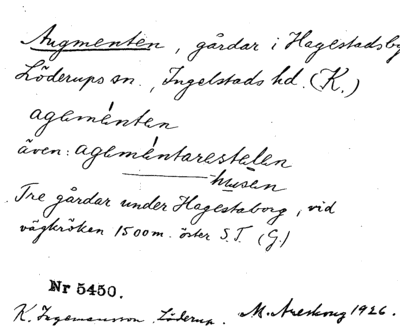 Augmenten, gårdar i Hagestadsby
Löderups sn., Ingelstads hd. (K.)
agemę́nten
även: agemę́ntarestelen
husen
Tre gårdar under Hagestaborg, vid
vägkröken 1500 m. öster S.T. (G.)
Nr 5450.
K. Ingemansson. Löderup. M. Areskoug 1926.